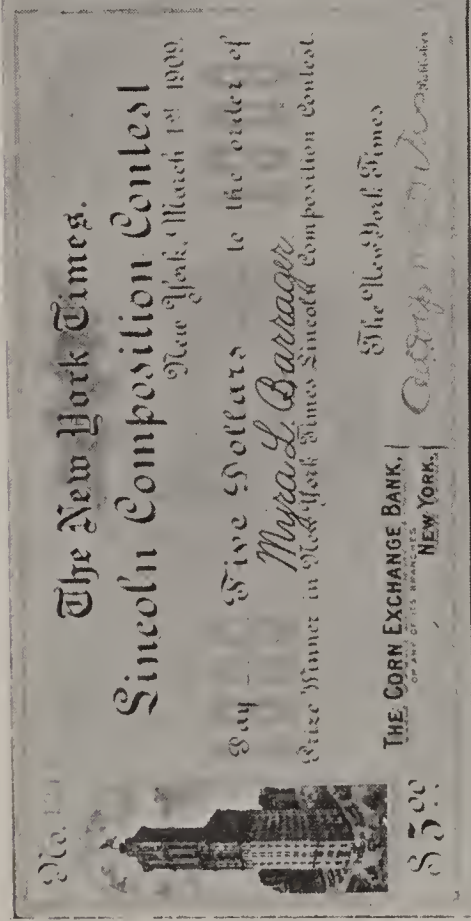 No.
The New York Times.
Lincoln Composition Contest
New York, March 1st 1909.
Pay Five Dollars to the order of
Myra L. Barrager
Prize Winner in New York Times Lincoln Composition Contest.
The New York Times
Publisher
THE CORN EXCHANGE BANK,
OR ANY OF ITS BRANCHES
NEW YORK.
$5.00